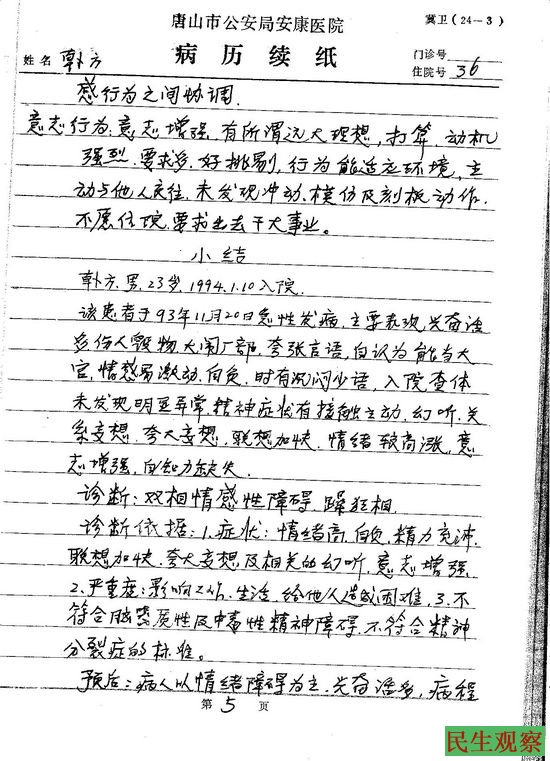 唐山市公安局安康医院
冀卫(24-3)
病历续纸
姓名 韩方
门诊号
住院号 36
感行为之间协调.
意志行为:意志增强,有所谓远大理想,打算,动机
强烈,要求多,好挑剔,行为能适应环境,主
动与他人交往,未发现冲动、模仿及刻板动作.
不愿住院,要求出去干大事业。
小结
韩方,男,23岁,1994.1.10入院.
该患者于93年11月20日急性发病,主要表现兴奋话
多伤人毁物大闹厂部,夸张言语,自认为能当大
官,情感易激动,自负,时有沉闷少语,入院查体
未发现明显异常,精神症状有接触主动,幻听,关
系妄想,夸大妄想,联想加快,情绪较高涨,意
志增强,自知力缺失.
诊断:双相情感性障碍,躁狂相.
诊断依据:1.症状:情绪高,自负,精力充沛,
联想加快,夸大妄想及相关的幻听,意志增强,
2.严重度:影响工作,生活,给他人造成困难,3.不
符合脑器质性及中毒性精神障碍,不符合精神
分裂症的标准。
预后:病人以情绪障碍为主,兴奋话多,病程
第 5 页
民生观察